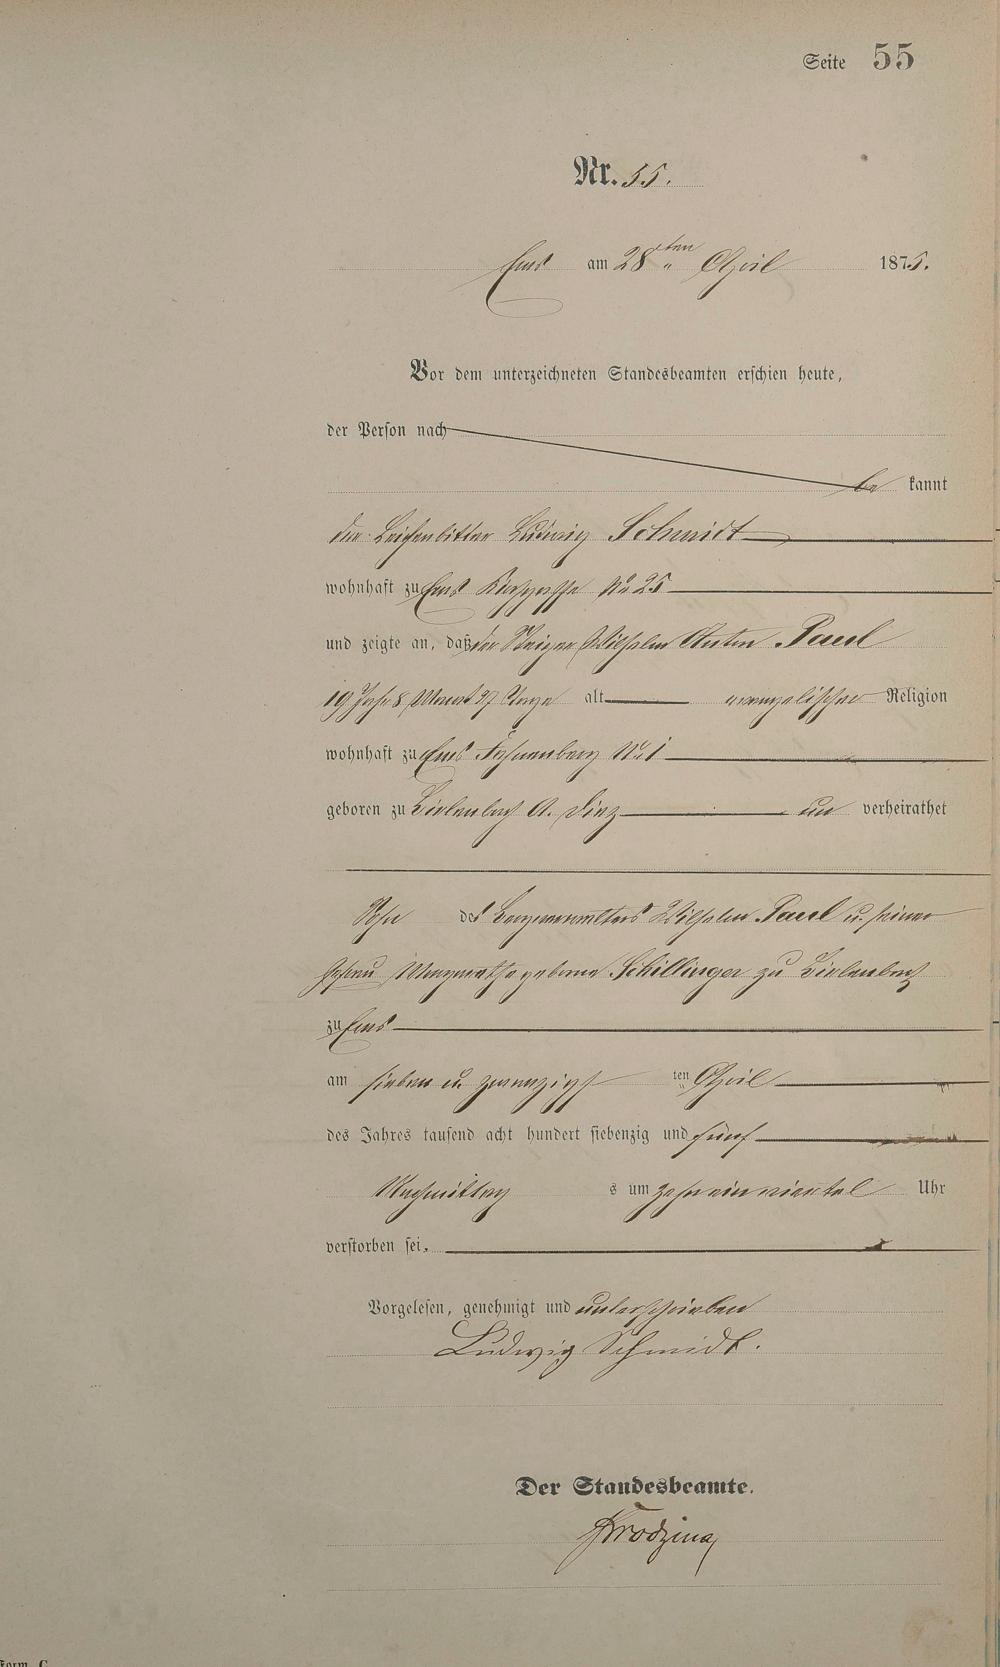 Seite 55
Nr. 55.
Ems am 28ten April 1875.
Vor dem unterzeichneten Standesbeamten erschien heute,
der Person nach
be kannt
der Leichenbitter Ludwig Schmidt
wohnhaft zu Ems No 25
und zeigte an, daß der Steiger Wilhelm Anton Paul
19 Jahr 8 Monat 27 Tage alt evangelischer Religion
wohnhaft zu Ems Fahnenberg No 1
geboren zu Birlenbach A. Diez un verheirathet
Sohn des Bergverwalters Wilhelm Paul u. seiner
Ehefrau Margarethe geborne Schillinger zu Birlenbach
zu Ems
am sieben u. zwanzigst ten April
des Jahres tausend acht hundert siebenzig und fünf
Nachmittag s um zehn ein viertel Uhr
verstorben sei.
Vorgelesen, genehmigt und unterschrieben
Ludwig Schmidt.
Der Standesbeamte.
Form. C.